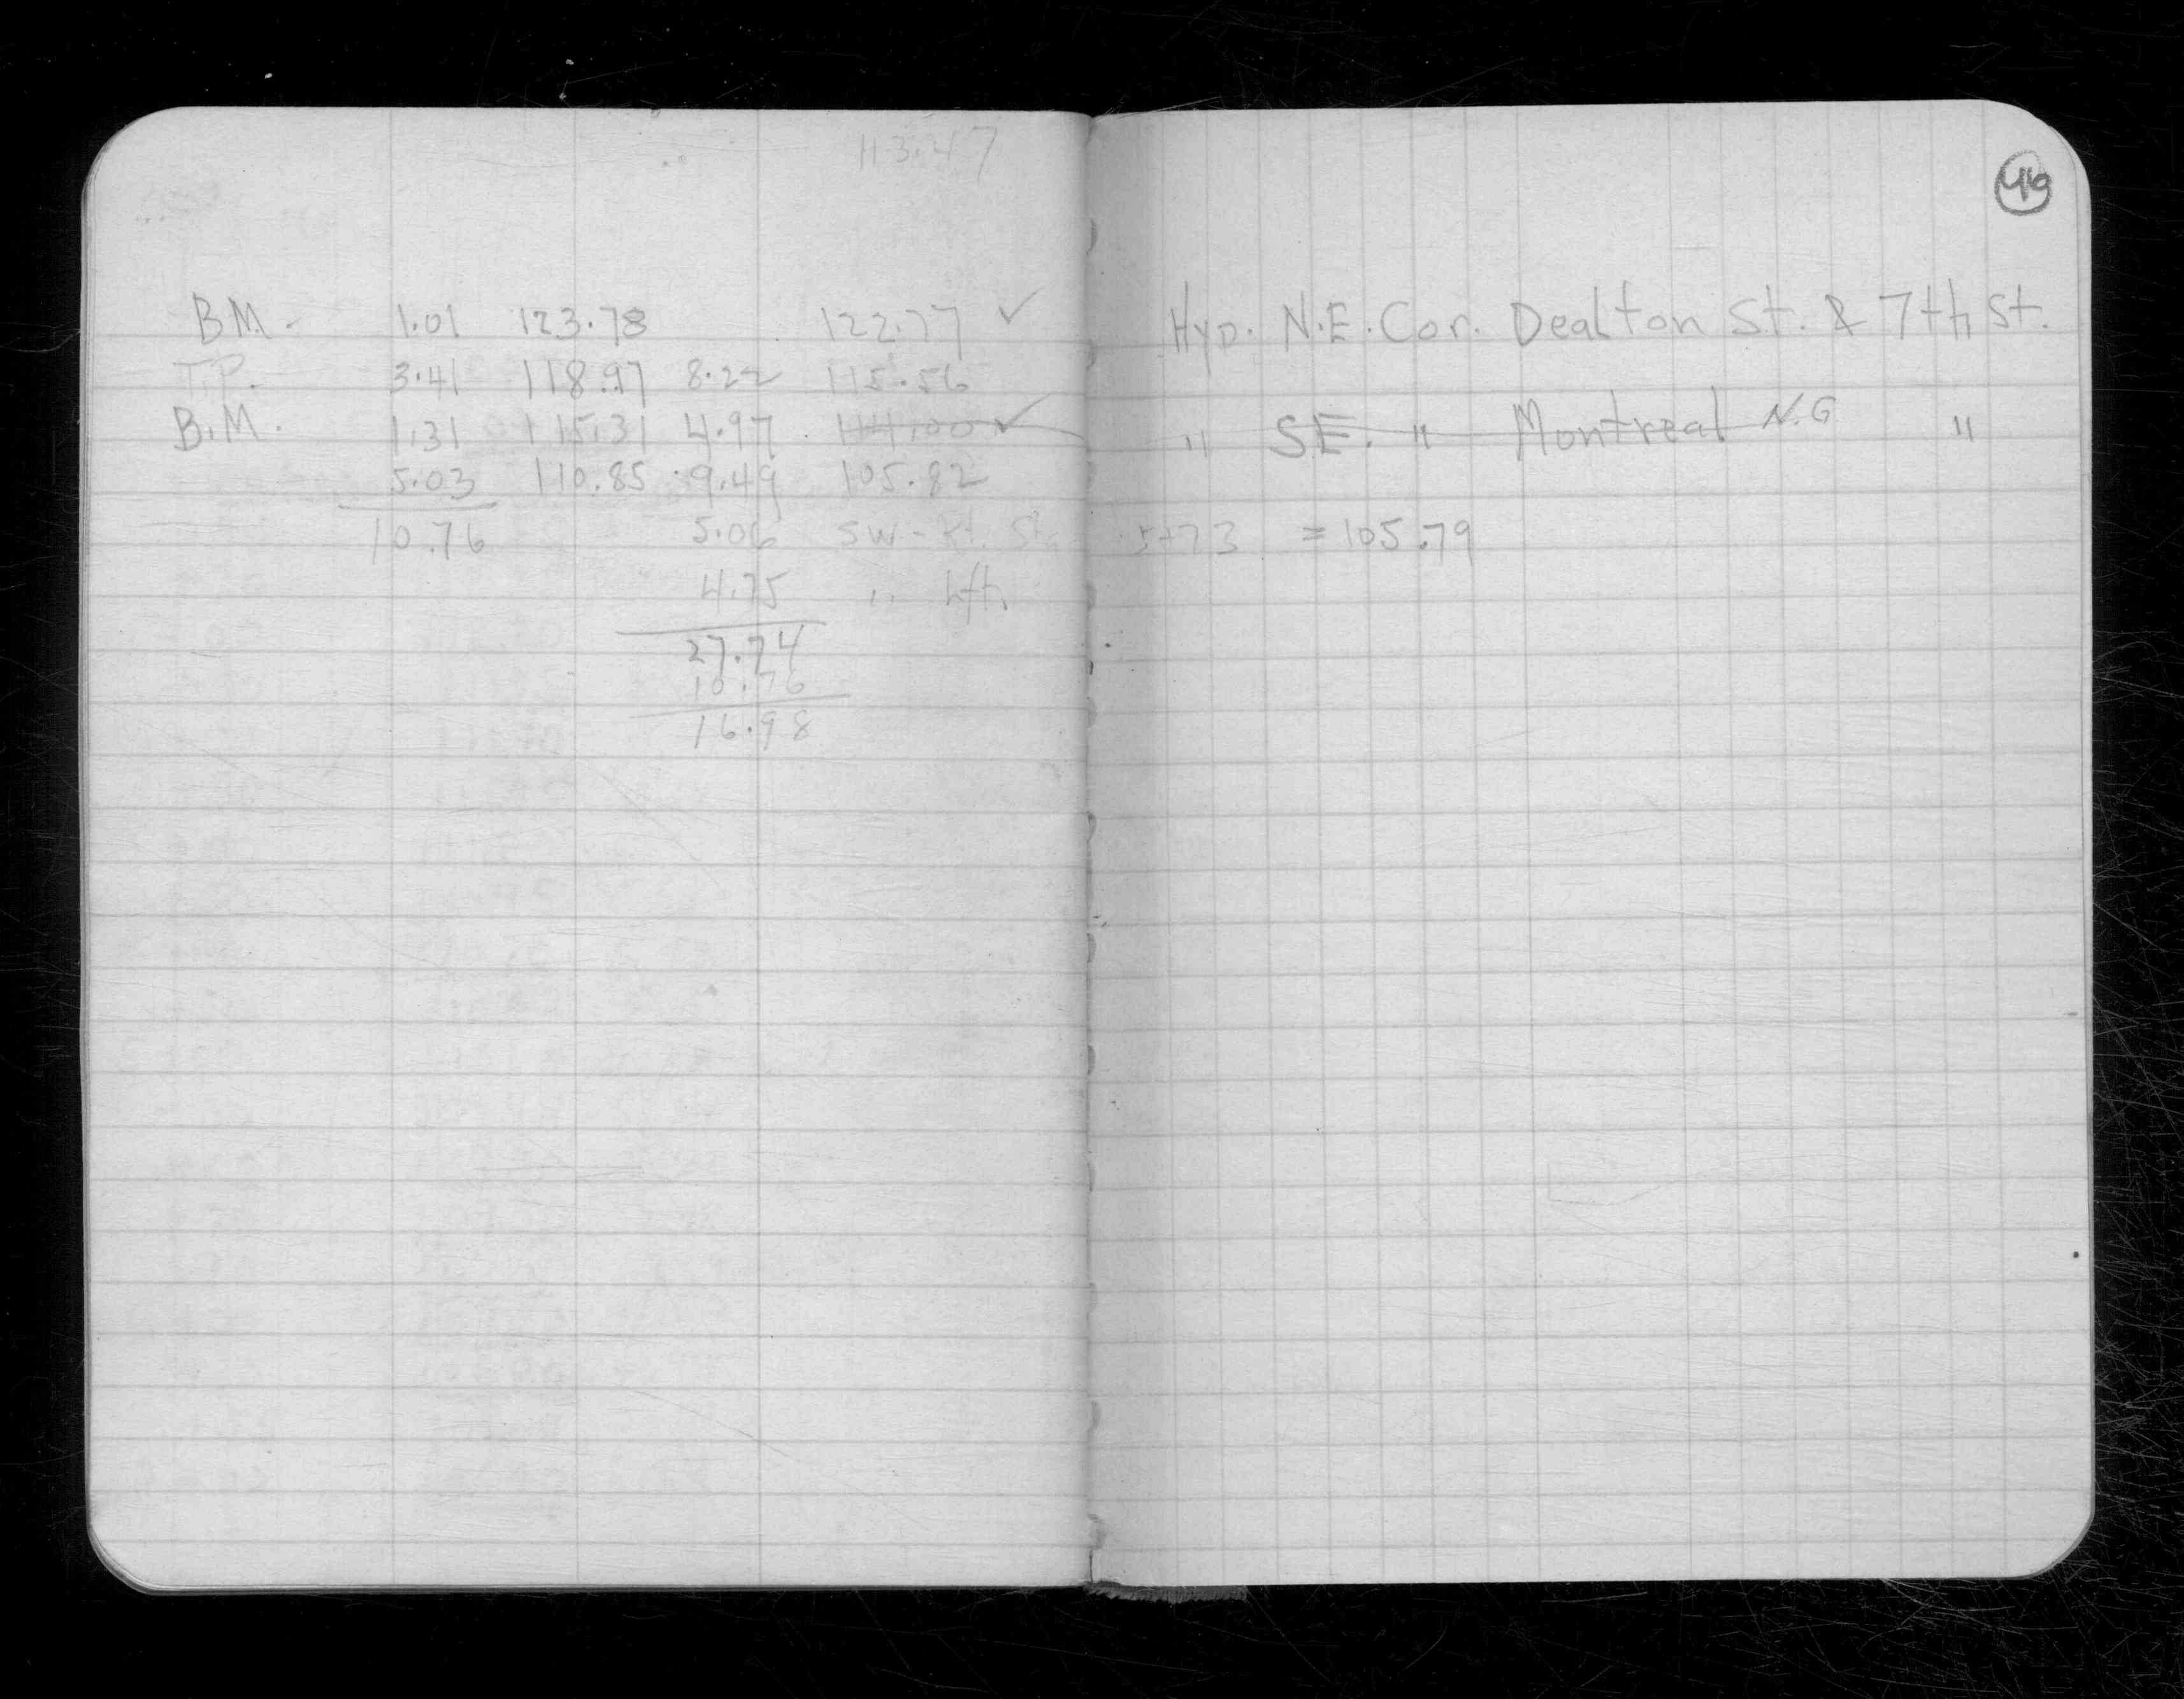 113.47
46
BM. 1.01 123.78 122.77 ✓ Hyd. N.E. Cor. Dealton St. & 7th St.
T.P. 3.41 118.97 8.22 115.56
B.M. 1.31 115.31 4.97 114.00 ✓ " S.E. " Montreal N.G " 
5.03 110.85 9.49 105.82
10.76 5.06 SW - Rt. Sta 5+73 = 105.79
4.75 " Lft.
27.74
10.76
16.98